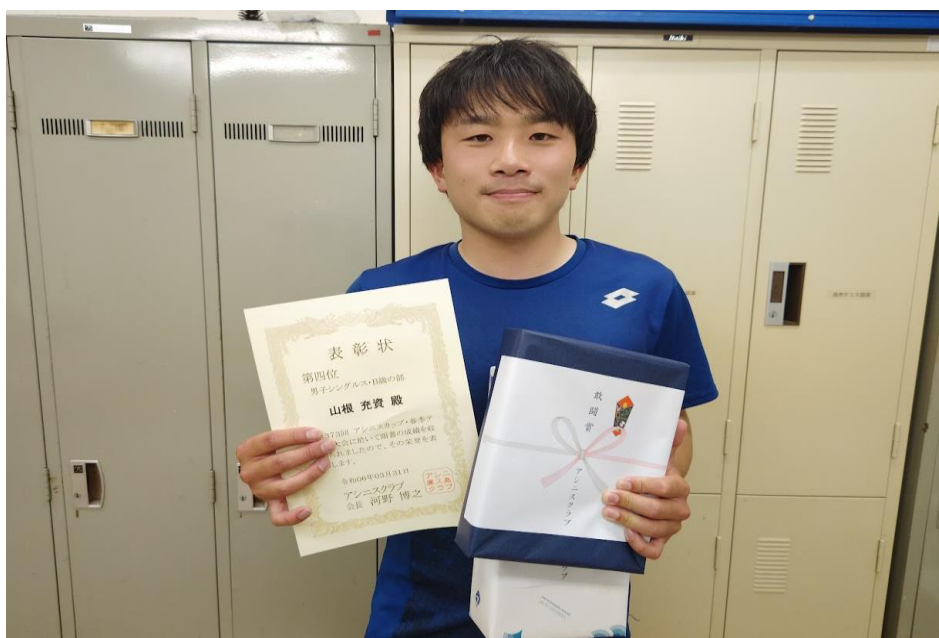 表彰状
第四位
男子シングルス・B級の部
山根 充資 殿
アシニスカップ・春季テ
大会に於いて頭書の成績を収
れましたので、その栄誉を表
します。
令和06年03月31日
アシニスクラブ
会長 河野 博之
敢闘賞
アシニスクラブ